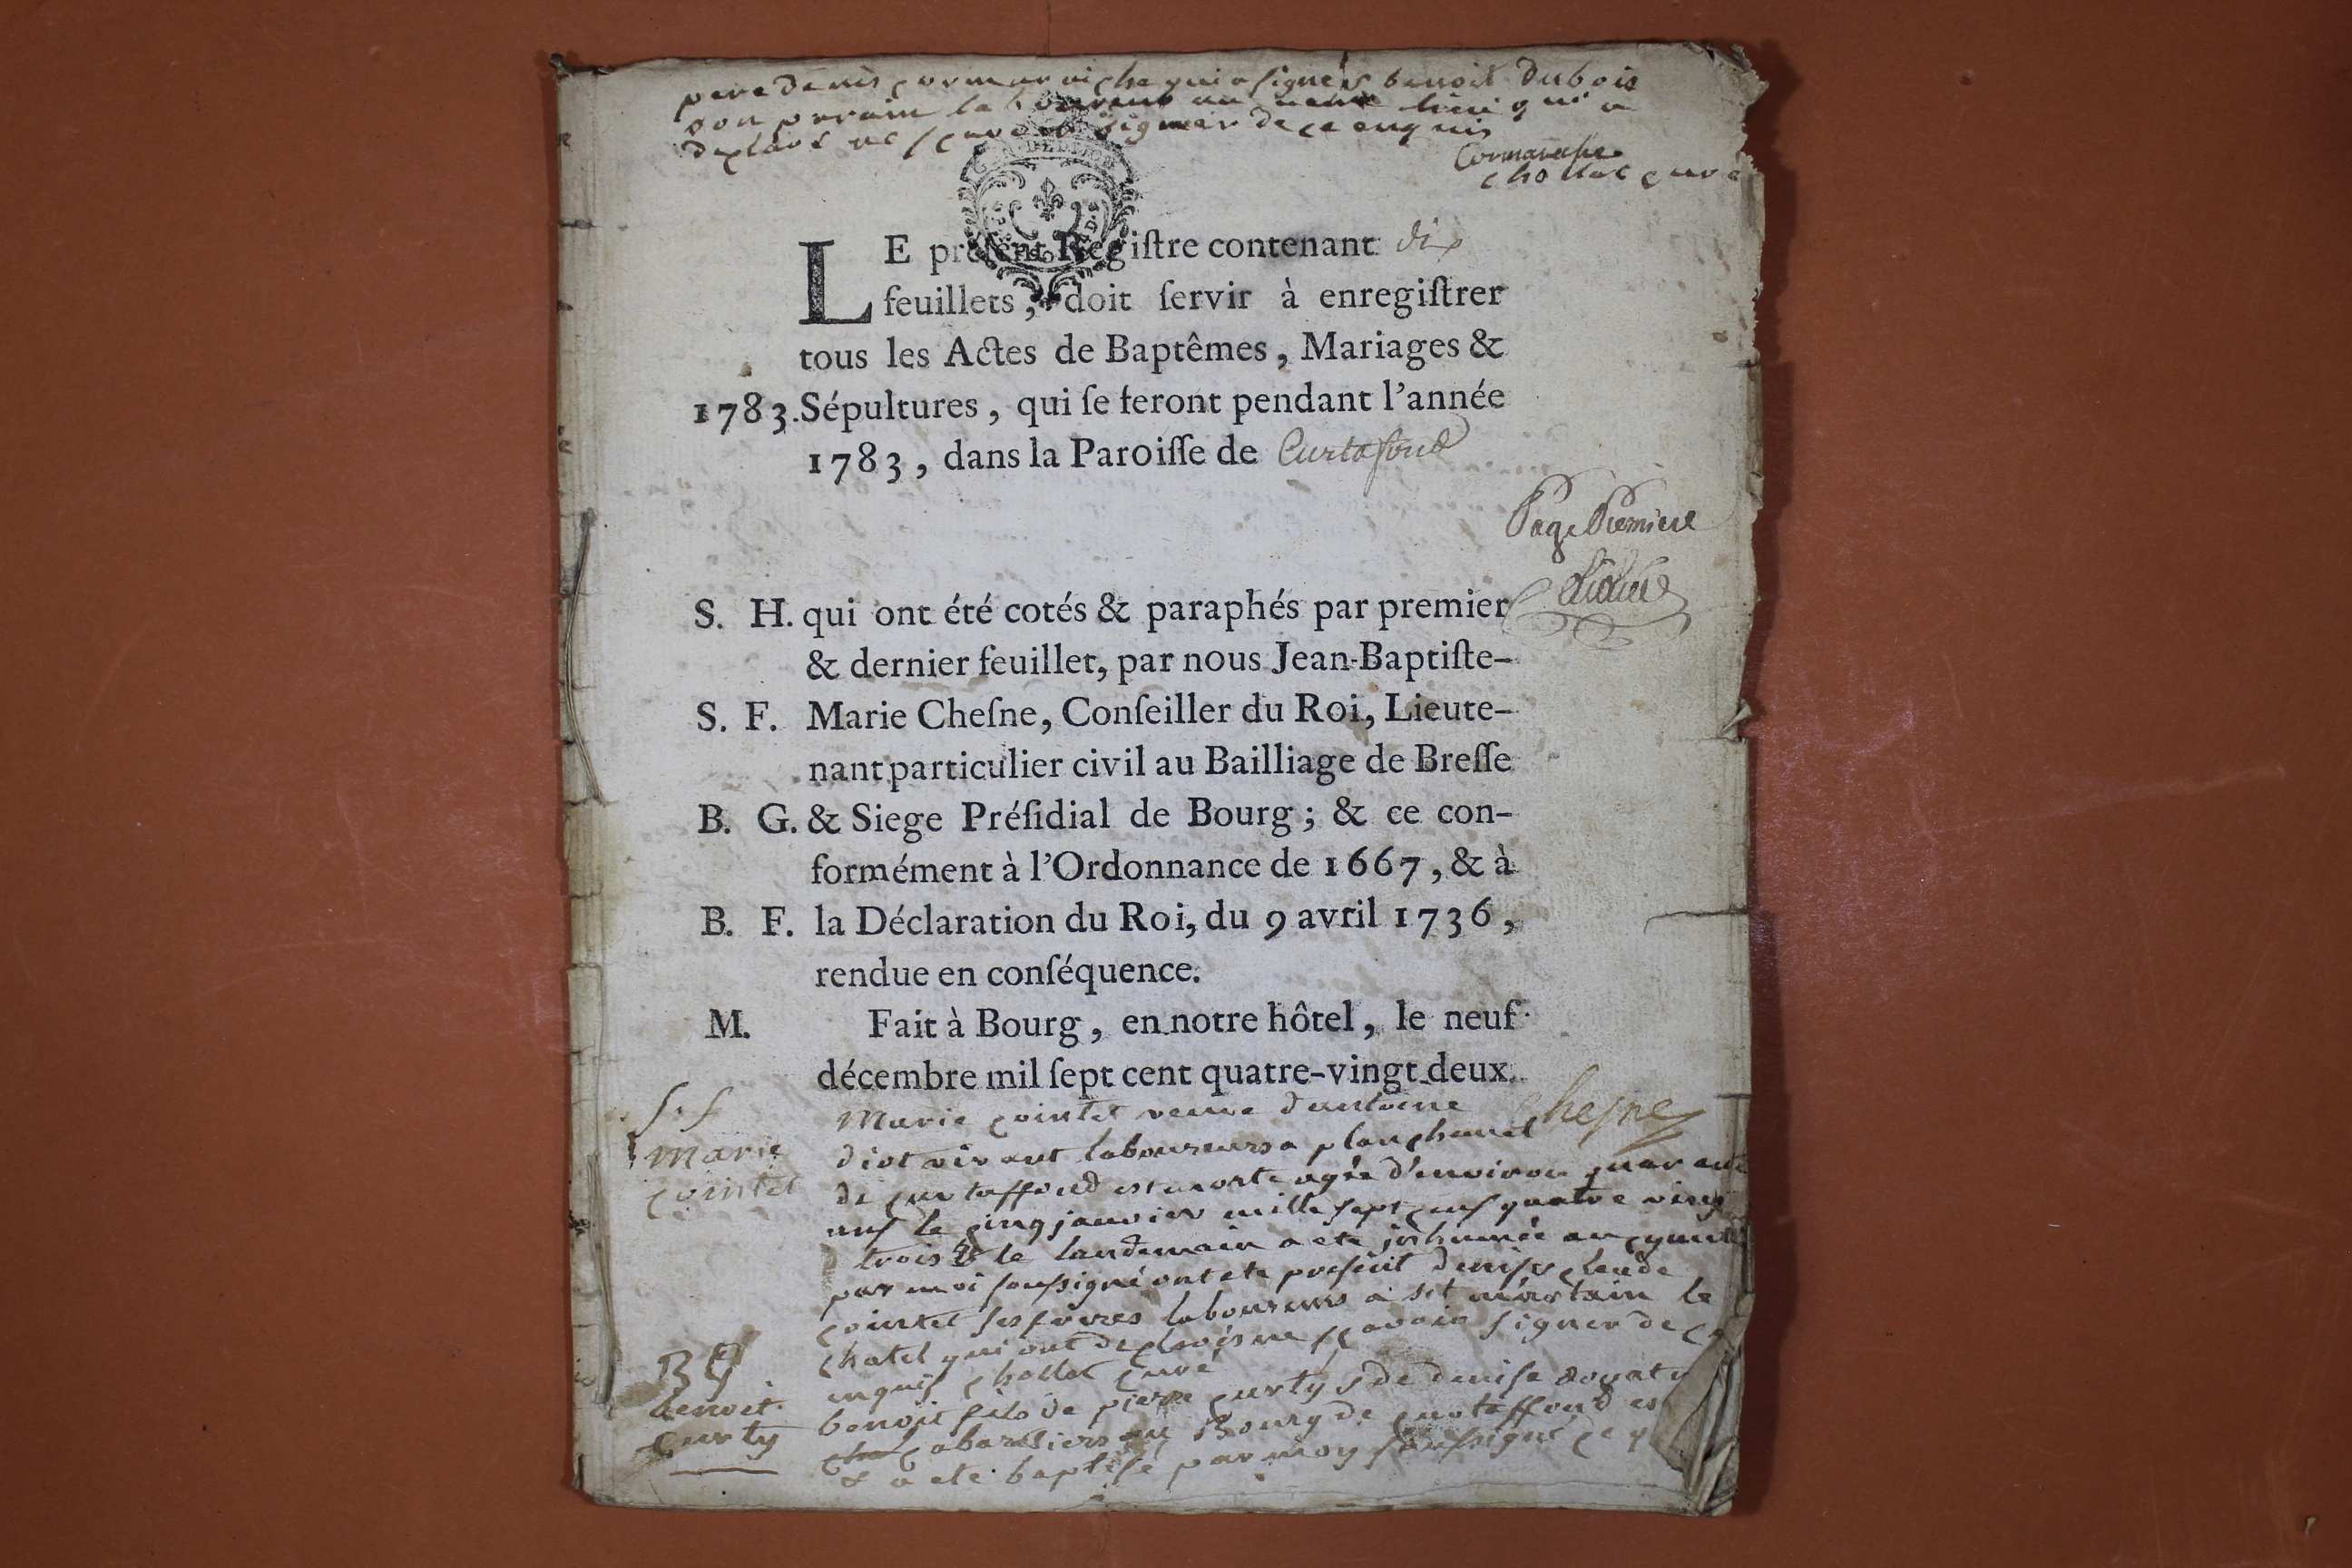 pere denis cormaraiche qui a signé & benoit Dubois
son parain laboureur au meme lieu qui a
declaré ne sçavoir signer de ce enquis
Cormaraiche
chollet curé
LE préſent Regiſtre contenant dix
feuillets, doit ſervir à enregiſtrer
tous les Actes de Baptêmes, Mariages &
1783. Sépultures, qui ſe feront pendant l'année
1783, dans la Paroiſſe de Curtafond
Page Premiere
S. H. qui ont été cotés & paraphés par premier
& dernier feuillet, par nous Jean-Baptiſte-
S. F. Marie Cheſne, Conſeiller du Roi, Lieute-
nant particulier civil au Bailliage de Breſſe
B. G. & Siege Préſidial de Bourg; & ce con-
formément à l'Ordonnance de 1667, & à
B. F. la Déclaration du Roi, du 9 avril 1736,
rendue en conſéquence.
M. Fait à Bourg, en notre hôtel, le neuf
décembre mil ſept cent quatre-vingt deux.
Chesne
s. f
marie
cointet
Marie cointet veuve d'antoine
diot vivant laboureurs a planchanel
de curtaffond est morte agée d'environ quarante
ans le cinq janvier mille sept cens quatre ving
trois & le landemain a eté inhumée au
par moi soussigné ont ete present denis & claude
cointet ses freres laboureurs a st martain le
chatel qui ont declarés ne sçavoir signer de ce
enquis chollet curé
B G
benoit
curty
benoit fils de pierre curty & de denise
cabaretiers au Bourg de curtaffond es
& a eté baptisé par moy soussigné